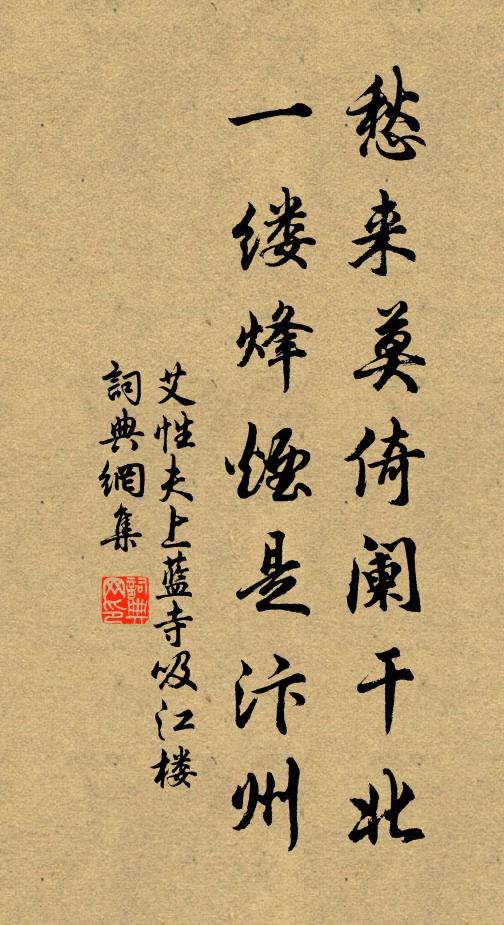 愁来莫倚阑干北
一缕烽煙是汴州
艾性夫上藍寺吸江楼
詞典網集
詞典网印